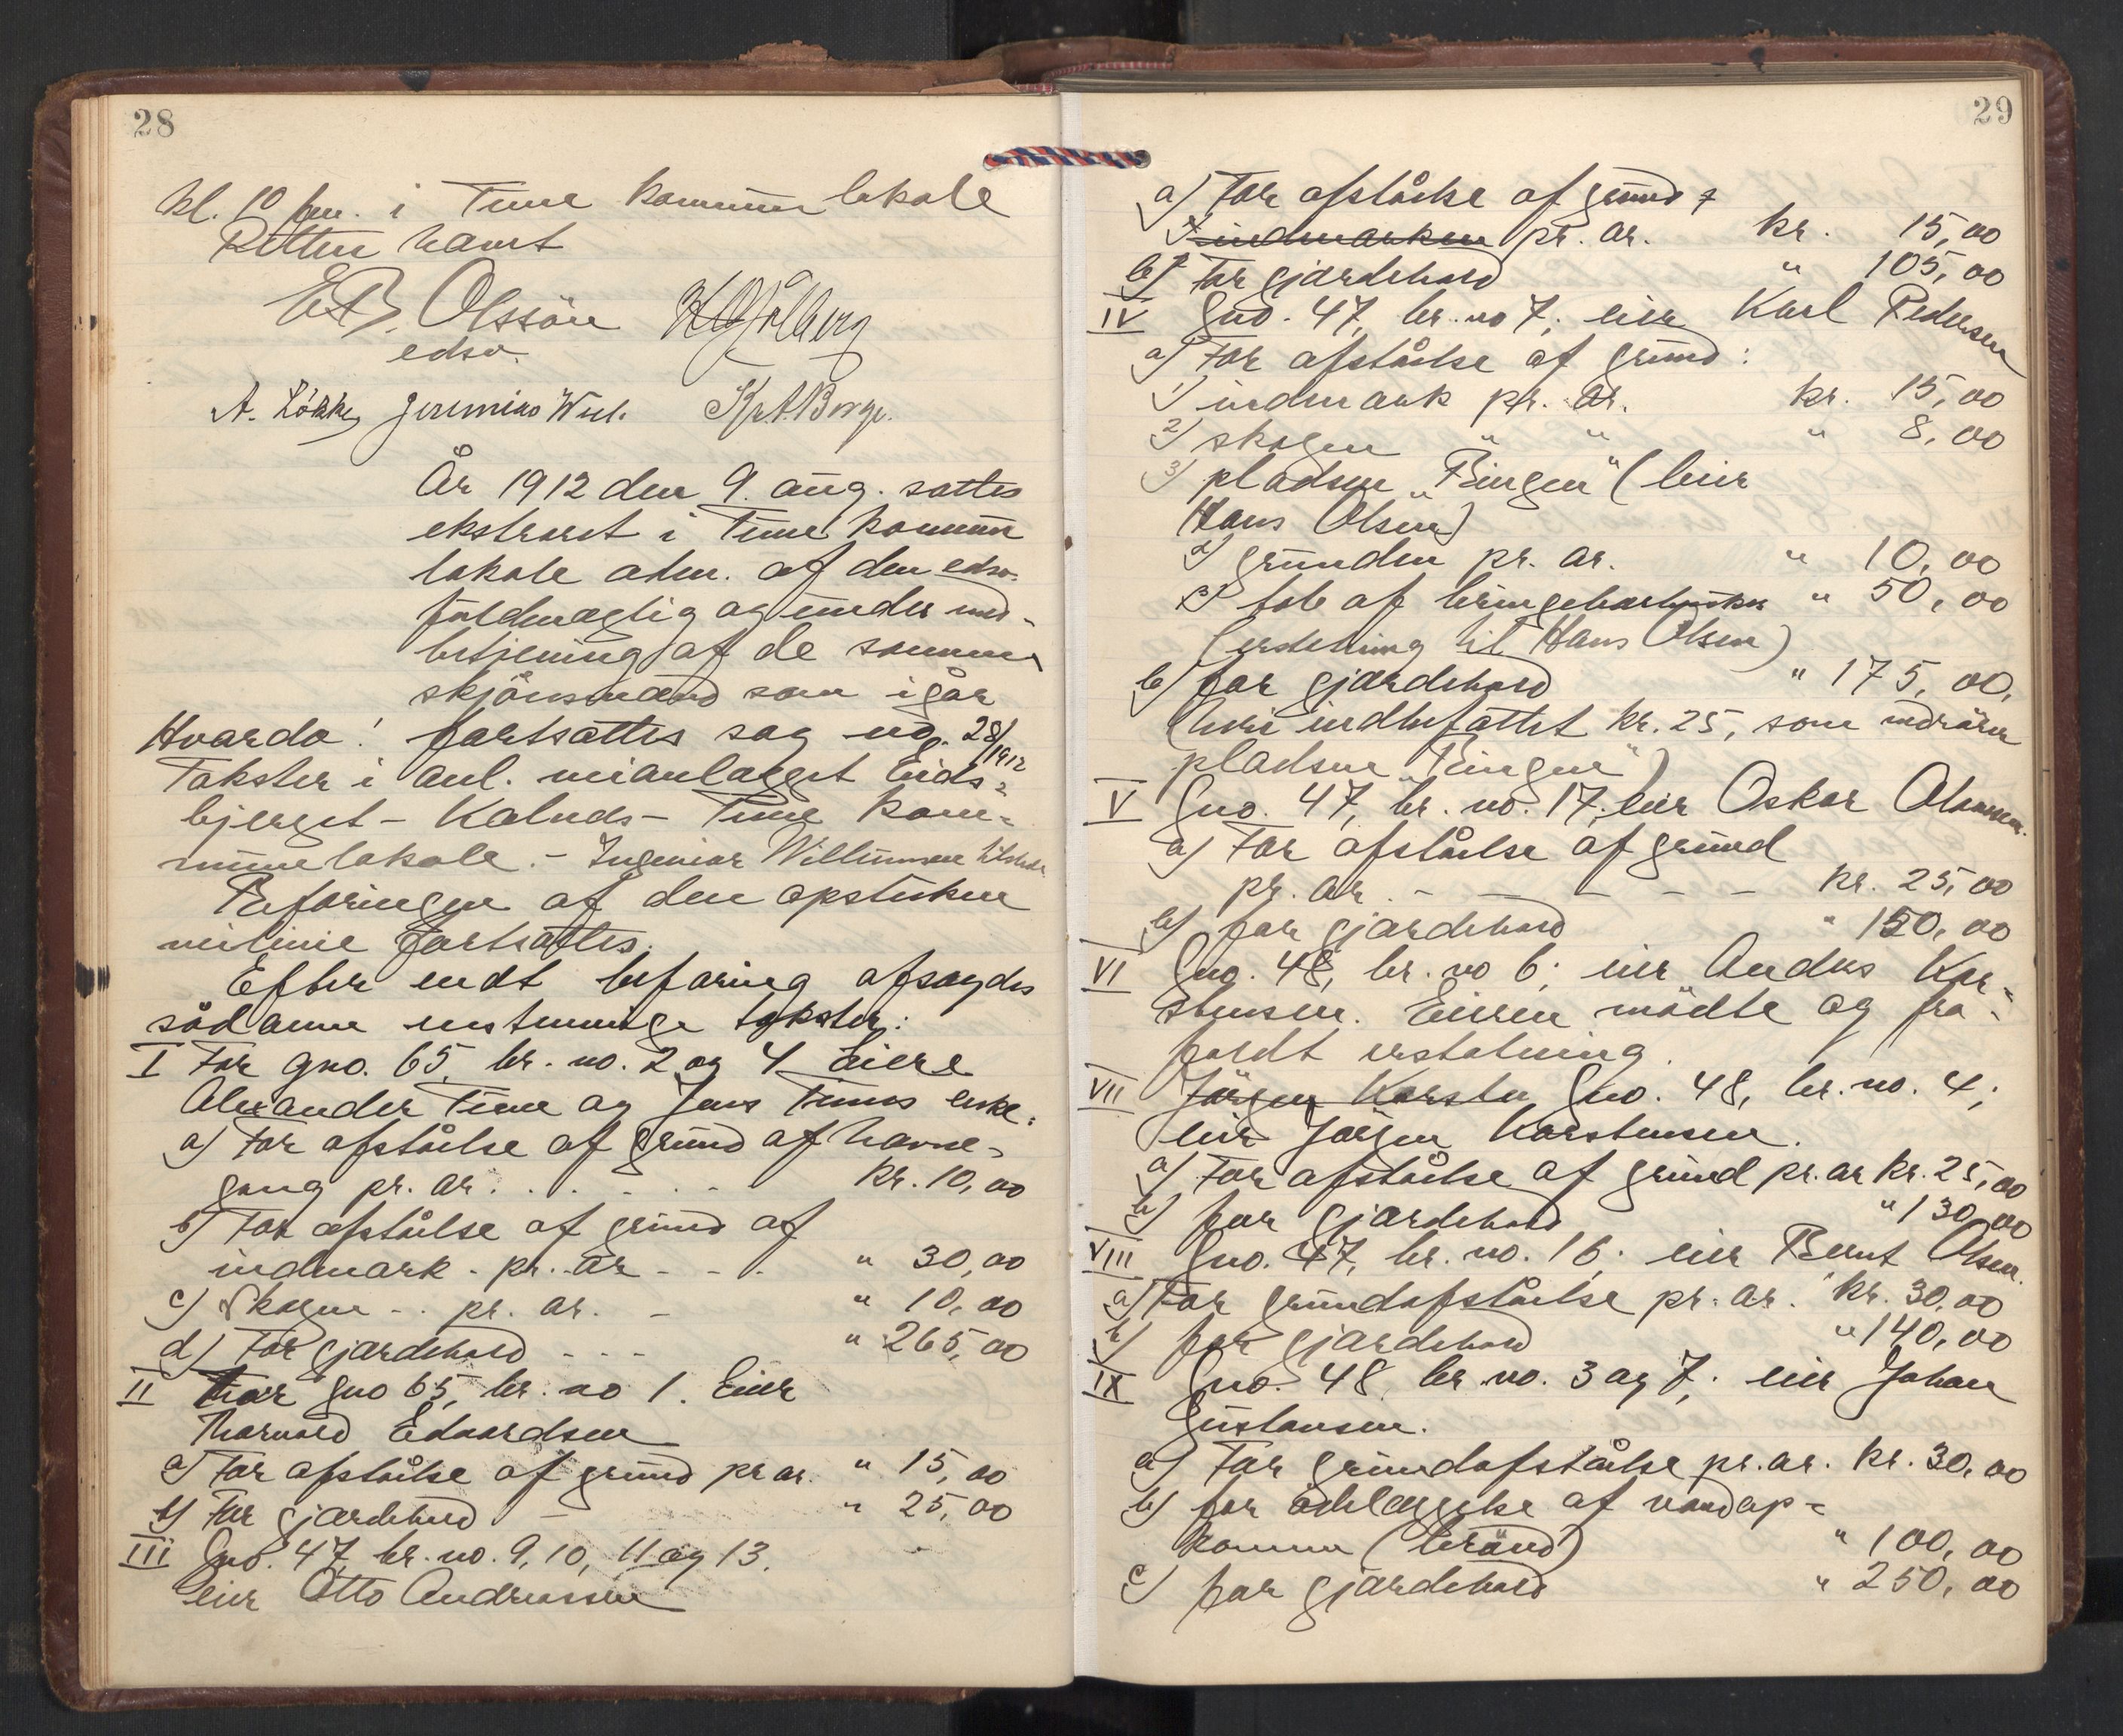 28
kl. 10 fm. i Tune kommunelokale
Retten hævet
Olssön
edsv.
A. Løkke Jeremias Kr. A. Borge.
År 1912 den 9. aug. sattes
ekstraret i Tune kommune
lokale adm. af den edsv.
fuldmægtig og under med-
betjening af de samme
skjönsmænd som igår
Hvorda! fortsattes sag no. 28/1912
Takster i anl. veianlægget Eids-
bjerget - Kalnes - Tune kom-
munelokale. - Ingeniør Willumsen tilstede
Befaringen af den opstukne
veilinie fortsattes.
Efter endt befaring afsagdes
sådanne enstemmige takster:
I For gno. 65, br. no. 2 og 4 Eiere
Alexander Tune og Jens Tunes enke:
a) For afståelse af grund af havne-
gang pr. ar. . . . . . kr. 10,00
b) For afståelse af grund af
indmark . pr. ar - - . " 30,00
c) Skogen - . pr. ar. - " 10,00
d) For gjærdehold - - - " 265,00
II For gno 65, br. no 1. Eier
Thorvald Edvardsen
a) For afståelse af grund pr ar. " 15,00
b) For gjærdehold - " 25,00
III Gno. 47, br. no. 9, 10, 11 og 13.
eier Otto Andreassen
29
a) For afståelse af grund
indmarken pr. ar. kr. 15,00
b) For gjærdehold " 105,00
IV Gno. 47, br. no 7; eier Karl Pedersen
a) For afståelse af grund:
1) indmark pr. ar. kr. 15,00
2) skogen " " " 8,00
3) pladsen "Bingen" (leier
Hans Olsen)
grunden pr. ar. " 10,00
tab af bringebærbusker " 50,00
(erstatning til Hans Olsen)
b) for gjærdehold " 175,00,
(heri indbefattet kr. 25, som vedrører
pladsen "Bingen")
V Gno. 47, br. no. 17; eier Oskar
a) For afståelse af grund
pr. ar. - - - - - kr. 25,00
b) for gjærdehold " 150,00
VI Gno. 48, br. no 6; eier Andus Kar-
stensen. Eieren mödte og fra-
faldt erstatning.
VII Jörgen Karsten Gno. 48, br. no. 4;
eier Jörgen Karstensen.
a) For afståelse af grund pr. ar kr. 25,00
b) for gjærdehold " 130,00
VIII Gno. 47, br. no. 16; eier Bernt Olsen.
a) For grundafståelse pr. ar. kr. 30,00
b) for gjærdehold " 140,00
IX Gno. 48 br no. 3 og 7; eier Johan
Gustavsen.
a) For grundafståelse pr. ar. kr. 30,00
b) for ödelæggelse af vandop-
komme (brönd) " 100,00
c) for gjærdehold " 250,00